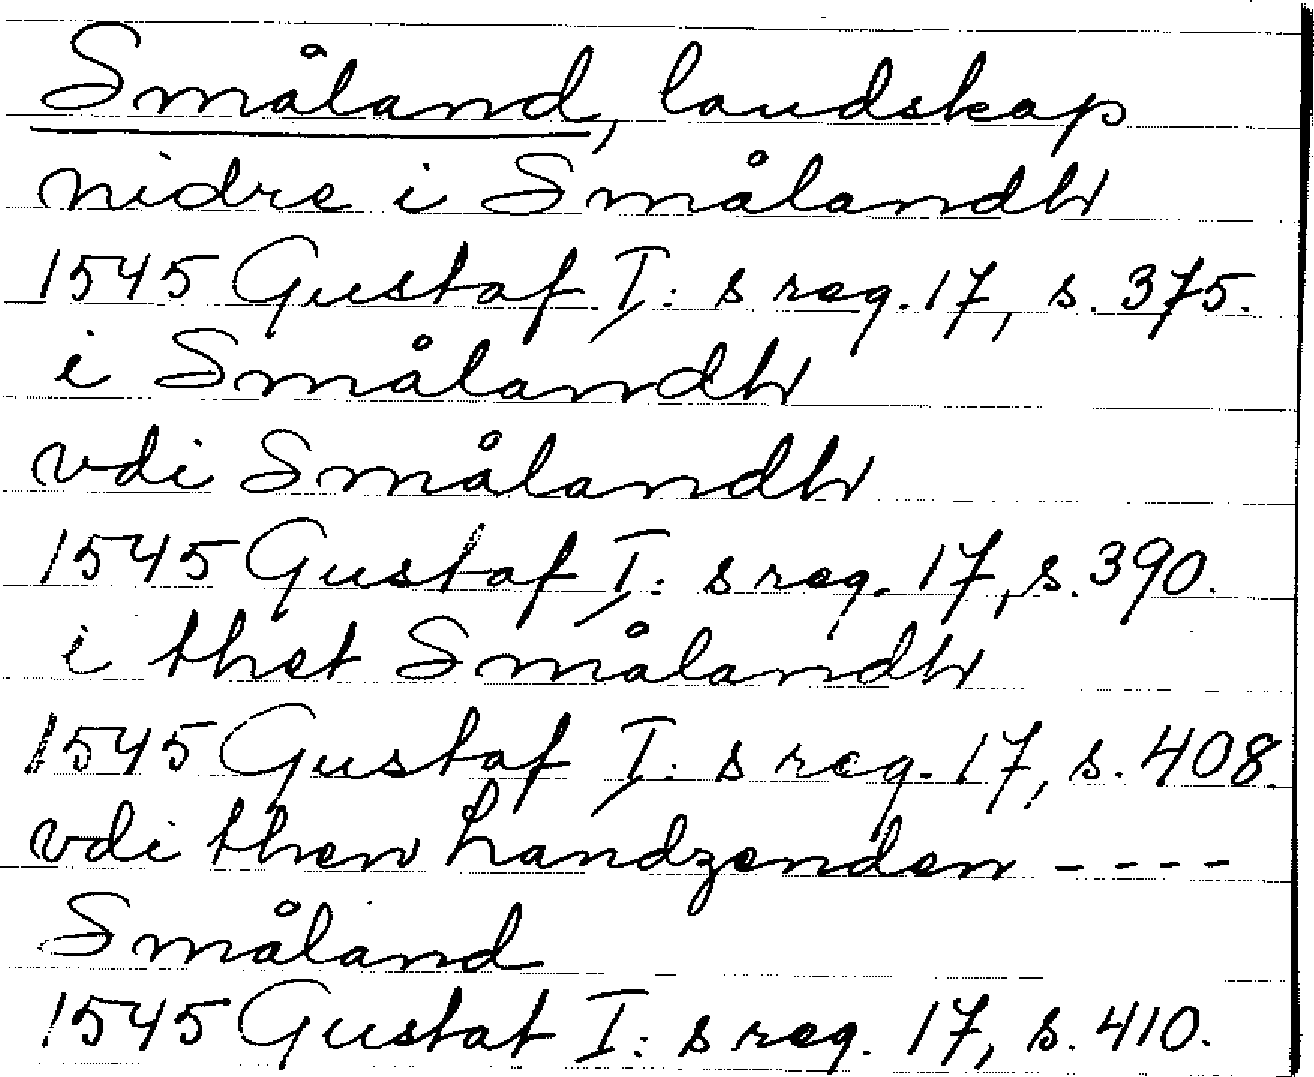 Småland, landskap
nidre i Smålandh
1545 Gustaf I: s reg. 17, s. 375.
i Smålandh
vdi Smålandh
1545 Gustaf I: s reg. 17, s. 390.
i thet Smålandh
1545 Gustaf I: s reg. 17, s. 408.
vdi then handzenden ----
Småland
1545 Gustaf I: s reg. 17, s. 410.